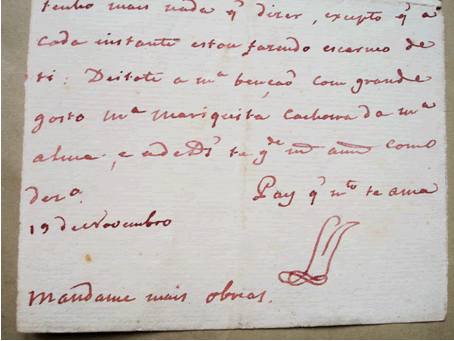 tenho mais nada q̃ dizer, excepto q̃ a
cada instante estou fazendo escarneo de
ti. Deitote a mª bençaõ com grande
gosto mª Mariquita Cachorra da mª
alma, e a de Dˢ te gᵈᵉ mˢ annˢ como
desª.
Pay q̃ mᵗᵒ te ama
19 de Novembro
Mandame mais obreas.